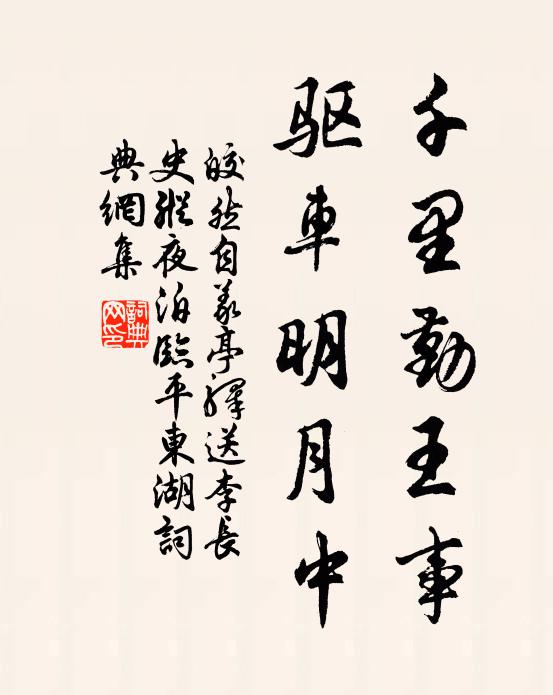 千里勤王事
驱車明月中
皎然自義亭驛送李長
史縱夜泊臨平東湖詞
典網集
詞典網印